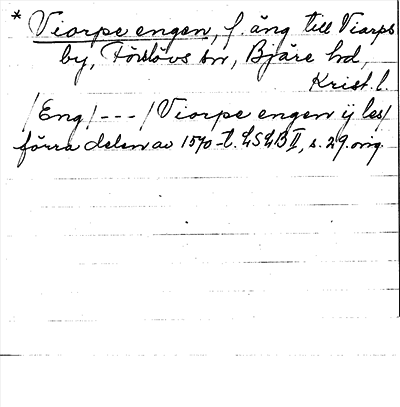 * Viorpe engen, f. äng till Viarps
by, Förslövs sn, Bjäre hd,
Krist. l.
/Eng/ --- / Viorpe engen ij les/
förra delen av 1570-t. LSLB II, s. 29. orig.